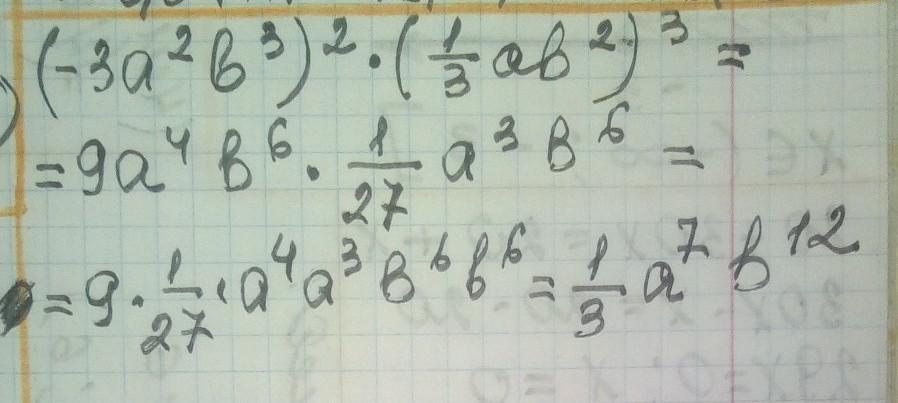 (-3a²b³)² · (1/3 ab²)³ =
= 9a⁴ b⁶ · 1/27 a³ b⁶ =
= 9 · 1/27 · a⁴a³b⁶b⁶ = 1/3 a⁷ b¹²